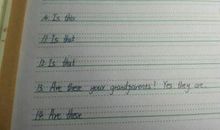 10. Is this
11. Is that
12. Is that
13. Are these your grandparents? Yes they are.
14. Are these